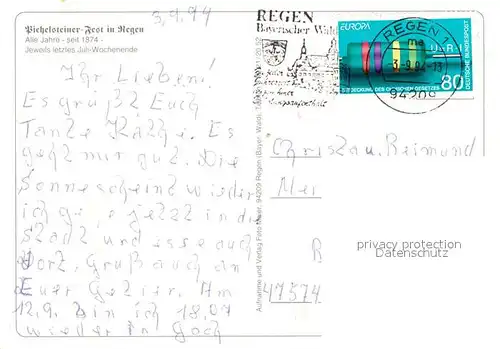 Pichelsteiner-Fest in Regen
Alle Jahre - seit 1874 -
Jeweils letztes Juli-Wochenende
3.9.94
Ihr Lieben!
Es grüßt Euch
Tante Käthe. Es
geht mir gut. Die
Sonne scheint wieder
ich gehe jetzt in die
Stadt und esse auch
dort. Gruß auch an
Euer Getier. Am
12.9. bin ich 18.07
wieder in Goch
Aufnahme und Verlag Foto Maier, 94209 Regen (Bayer. Wald)
REGEN
Bayerischer Wald
EUROPA
80
DEUTSCHE BUNDESPOST
REGEN 1
ma
94209
Christau. Reimund
Mer
R
47574
privacy protection
Datenschutz